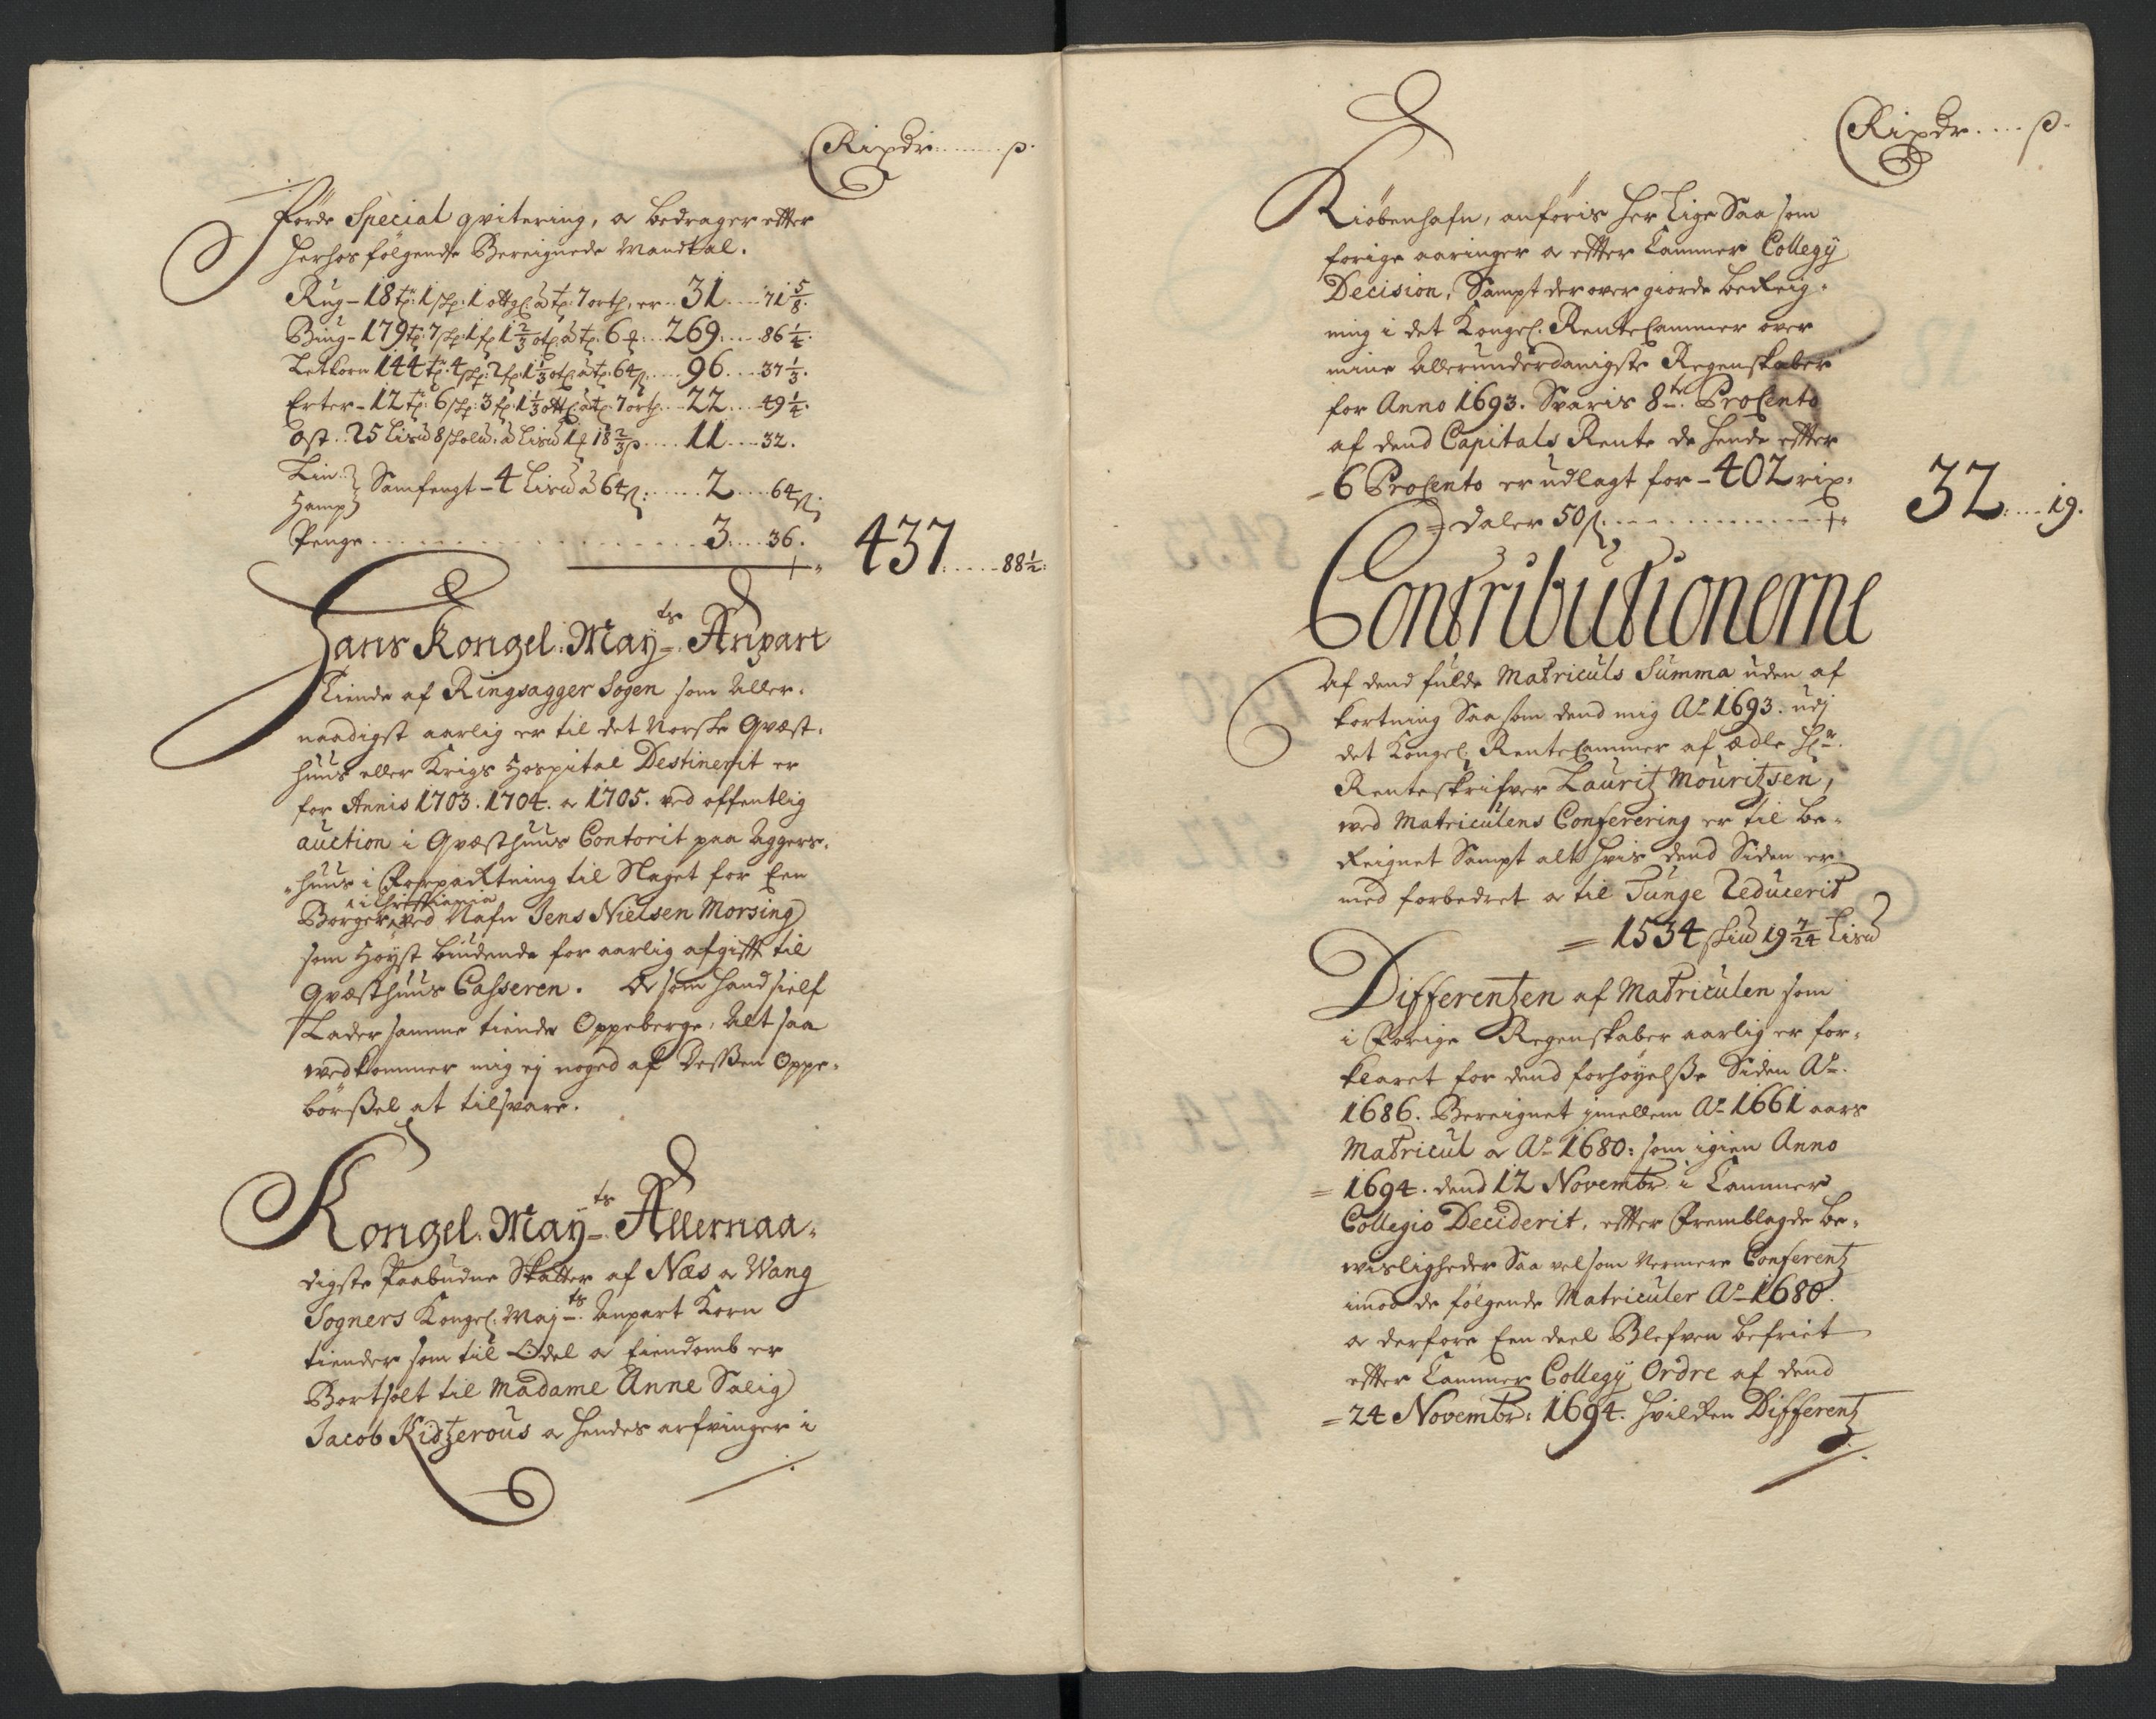 Rixdr: ß.
Förde Special qvitering, a bedrager effter
herhos følgende Bereignede Mandtal.
Rug - 18 tr: 1 skp: 1 ottgl: à tr: 7 orth, er .. 31 .... 71 5/8.
Biug - 179 tr: 7 skp: 1 fr: 1 2/3 otl: à tr: 6 ... 269 .... 86 1/4.
Letkorn 144 tr: 4 skp: 2 fr: 1 1/3 otl à tr: 64 ß .... 96 .... 37 1/3.
Erter - 12 tr: 6 skp: 3 fr: 1 1/3 ottl: à tr: 7 orth .. 22 .... 49 1/4.
Ost .. 25 Lisu 8 skolu: à Lisu 1 18 2/3 ß ..... 11 .... 32.
Lin: } Samfengt - 4 Lisu à 64 ß: ...... 2 .... 64 ß:
Hamp }
Penge ............ 3 .... 36.
437 ..... 88 1/2:
Hans Kongel: Mayts: Anpart
Tiende af Ringsagger Sogen som Aller-
naadigst aarlig er til det Norske Qvæst-
huus eller Krigs Hospital Destinerit er
for Annis 1703. 1704. a 1705. ved offentlig
auction i Qvæsthuus Contorit paa Aggers-
huus i Forpacktning til Slaget for Een
i Christiania
Borger ved Nafn Jens Nielsen Morsing
som Høyst biudende for aarlig afgifft til
Qvæsthuus Casseren. Er som hand sielf
Lader samme tiende Oppeberge, Alt saa
wedkommer mig ej noged af dessen Oppe-
børssel at tilsvare.
Kongel: Mayts: Allernaa-
digste Paabudne Skatter af Næs a Wang
Sogners Kongel: Majts: Anpart Korn
tiender som til Odel a Eiendomb er
Bortsolt til Madame Anne Salig
Jacob Ridtzerous a hendes arfvinger i
Rixdr .... ß.
Kiøbenhafn, anføris her Lige Saa som
forige aaringer a effter Cammer Collegij
Decision, Sampt der over giorde bereig-
ning i det Kongel: RenteCammer over
mine Allerunderdanigste Regenskaber
for Anno 1693. Svaris 8te ProCento
af dend Capitals Rente de hende effter
6 ProCento er udlagt for - 402 rix-
daler 50 ß. ............
32 .... 19.
Contributionerne
Af dend fulde Matriculs Summa uden af
kortning Saa som dend mig Ao 1693. udj
det Kongel: RenteCammer af ædle Hr:
Renteskrifver Lauritz Mouritzsen,
ved Matriculens Conferering er til be-
Reignet Sampt alt hvis dend Siden er
med forbedret a til Tunge Reducerit
= 1534 skiu 19 7/24 Lisu
Differentzen af Matriculen som
i Forige Regenskaber aarlig er for-
klaret for dend forhøyelsse Siden Ao
1686. Bereignet jmellem Ao 1661 aars
Matricul a Ao 1680: som igien Anno
= 1694. dend 12 Novembr: i Cammer
Collegio Deciderit, effter Fremblagde be-
wisligheder Saa vel som Nermere Conferentz
imod de følgende Matriculer Ao 1680.
a derfore Een deel Blefven befriet
effter Cammer Collegij Ordre af dend
= 24 Novembr: 1694. hvilken Differentz